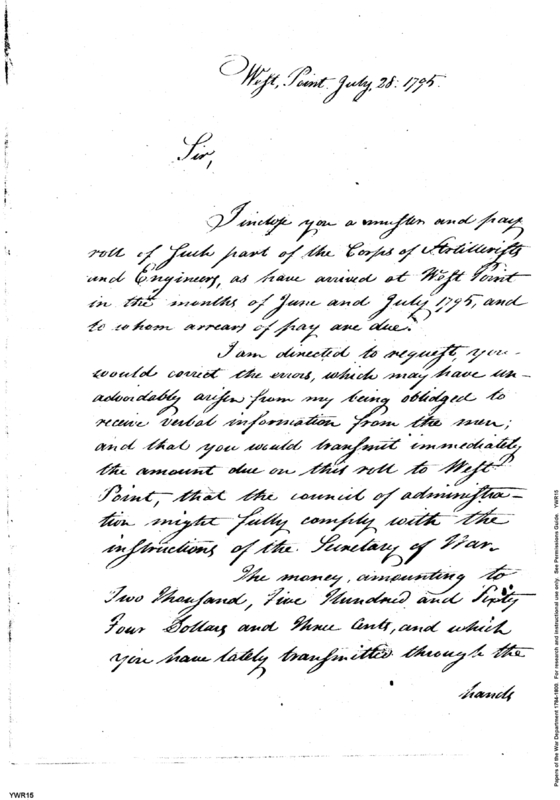 West, Point. July, 28: 1795.
Sir,
I inclose you a muster and pay
roll of such part of the Corps of Artillerists
and Engineers, as have arrived at West Point
in the months of June and July 1795, and
to whom arrears of pay are due.
I am directed to request, you
would correct the errors, which may have un-
advoidably arisen from my being oblidged to
receive verbal information from the men;
and that you would transmit immediately
the amount due on this roll to West
Point, that the council of administra-
tion might fully comply with the
instructions of the Secretary of War.
The money, amounting to
Two Thousand, Five Hundred and Sixty
Four Dollars and Three Cents, and which
you have lately transmitted through the
hands
YWR15
Papers of the War Department 1784-1800. For research and instructional use only. See Permissions Guide. YWR15